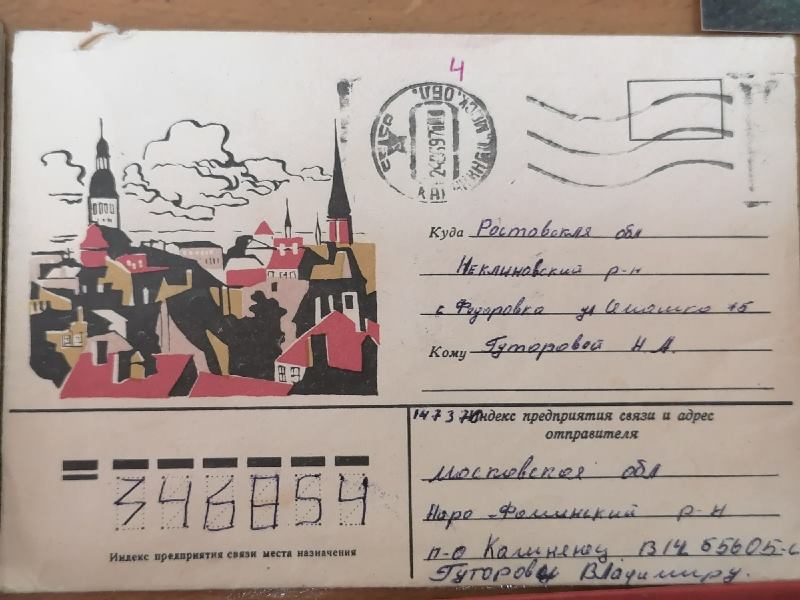 4
24 06 97
Куда Ростовская обл
Неклиновский р-н
с Федоровка ул 75
Кому Гуторовой Н А.
147370
Индекс предприятия связи и адрес
отправителя
Московская обл
Наро-Фоминский р-н
п-о Калининец В/Ч 65605-с
Гуторову Владимиру.
346854
Индекс предприятия связи места назначения